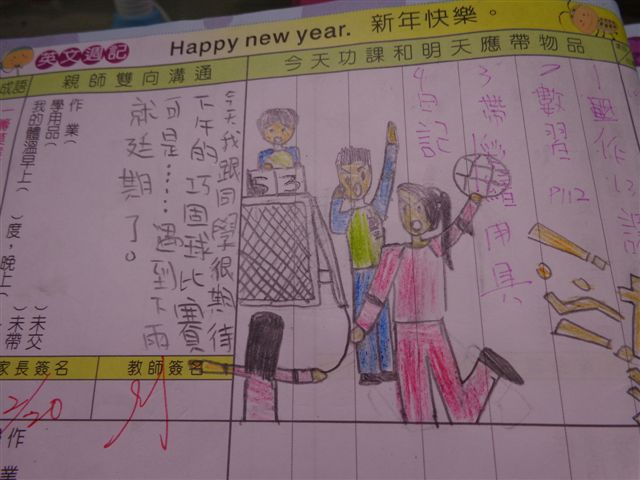 英文週記 Happy new year. 新年快樂。
成語 親師雙向溝通 今天功課和明天應帶物品
2 數習 P112
3 帶 用具
4 日記
53
今天我跟同學很期待
下午的巧固球比賽
可是......遇到下雨
就延期了。
作業( )未交
學用品( )未帶
我的體溫早上( )度,晚上(
家長簽名 教師簽名
2/20
作
業